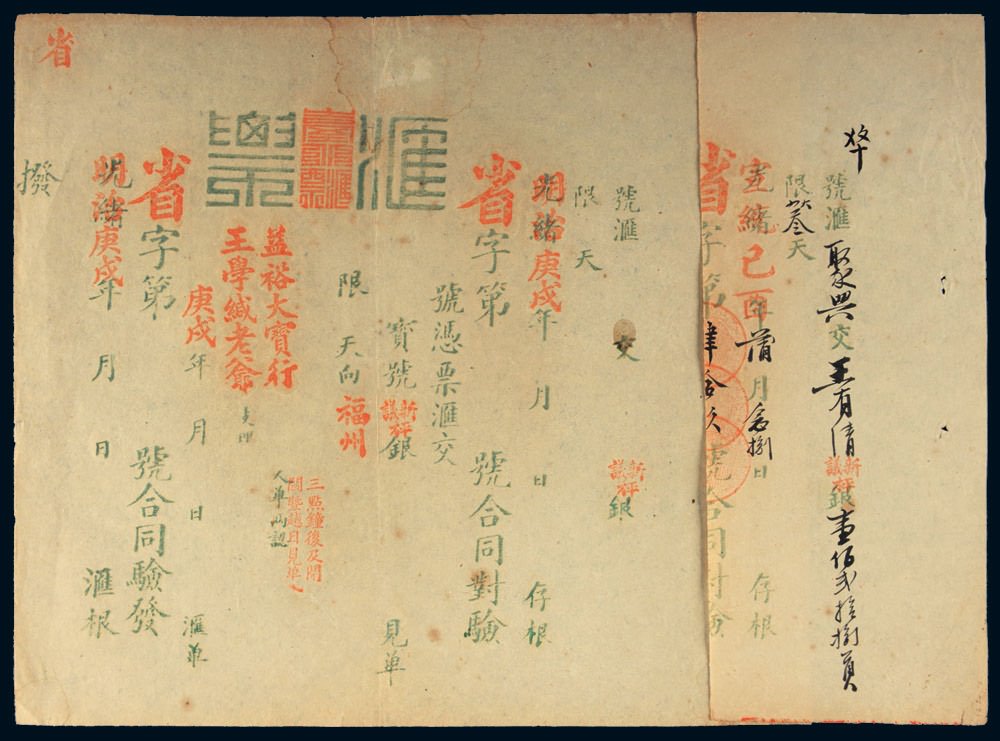 號滙聚興交王有清新議秤銀壹佰弍拾捌員
限叁天
宣統己酉年蒲月念捌日存根
省字第肆拾久號合同對驗
號滙 交 新議秤銀
限 天
光緒庚戌年 月 日存根
省字第 號合同對驗
滙票
號憑票滙交
寶號新議秤銀 見单
限 天向福州
益裕大寶行
王學緘老爺
三點鐘後及閉
越日見单
人单兩認
庚戌年 月 日滙单
省字第 號合同驗發
光緒庚戌年 月 日滙根
撥
省